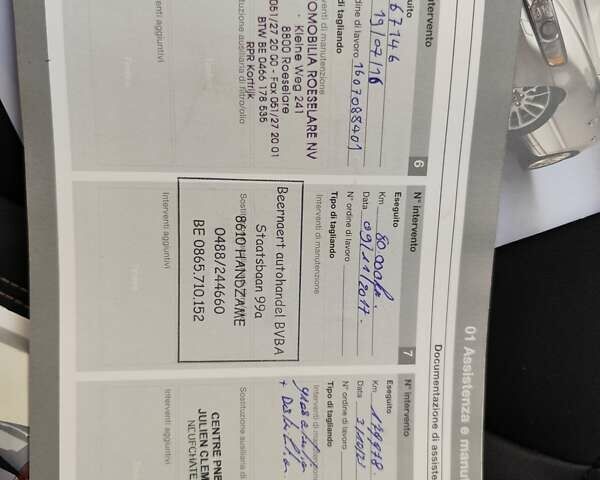 01 Assistenza e manu
Documentazione di assiste
intervento 6
eseguito
67146
19/07/16
dine di lavoro 1607088401
di tagliando
venti di manutenzione
OMOBILIA ROESELARE NV
- Kleine Weg 241
8800 Roeselare
051/27 20 00 - Fax 051/27 20 01
BTW BE 0466 178 535
RPR Kortrijk
stituzione ausiliaria di filtro/olio
Interventi aggiuntivi
N° intervento 7
Eseguito
Km 80.000km.
Data 09/11/2017.
N° ordine di lavoro
Tipo di tagliando
Interventi di manutenzione
Beernaert autohandel BVBA
Staatsbaan 99a
Sosti
8610 HANDZAME
0488/244660
BE 0865.710.152
Interventi aggiuntivi
N° intervento
Eseguito
Km
Data
N° ordine di lavoro
Tipo di tagliando
Interventi di
Sostituzione ausiliaria di
CENTRE PNE
JULIEN CLEM
NEUFCHATE
Interventi aggiuntivi